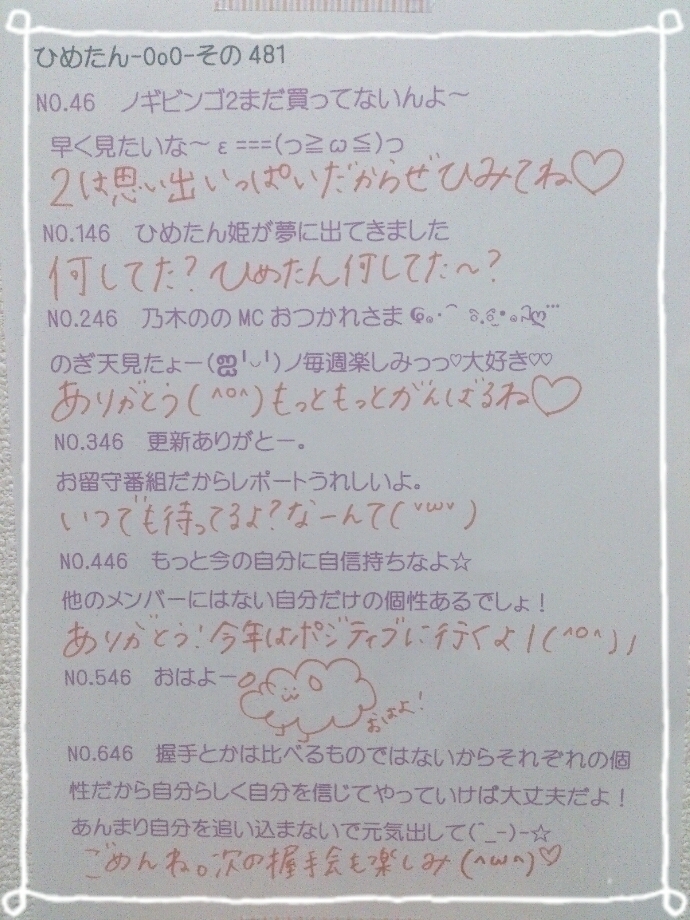 ひめたん-OoO-その481
NO.46 ノギビンゴ2まだ買ってないんよ〜
早く見たいな〜ε===(っ≧ω≦)っ
2は思い出いっぱいだからぜひみてね♡
NO.146 ひめたん姫が夢に出てきました
何してた?ひめたん何してた〜?
NO.246 乃木ののMCおつかれさま
のぎ天見たょー(ஐ╹◡╹)ノ毎週楽しみっっ♡大好き♡♡
ありがとう(^o^)もっともっとがんばるね♡
NO.346 更新ありがとー。
お留守番組だからレポートうれしいよ。
いつでも待ってるよ?なーんて(ˇωˇ)
NO.446 もっと今の自分に自信持ちなよ☆
他のメンバーにはない自分だけの個性あるでしょ!
ありがとう!今年はポジティブに行くよ!(^o^)ノ
NO.546 おはよー
おはよ!
NO.646 握手とかは比べるものではないからそれぞれの個
性だから自分らしく自分を信じてやっていけば大丈夫だよ!
あんまり自分を追い込まないで元気出して(^_-)-☆
ごめんね。次の握手会も楽しみ(^ω^)♡